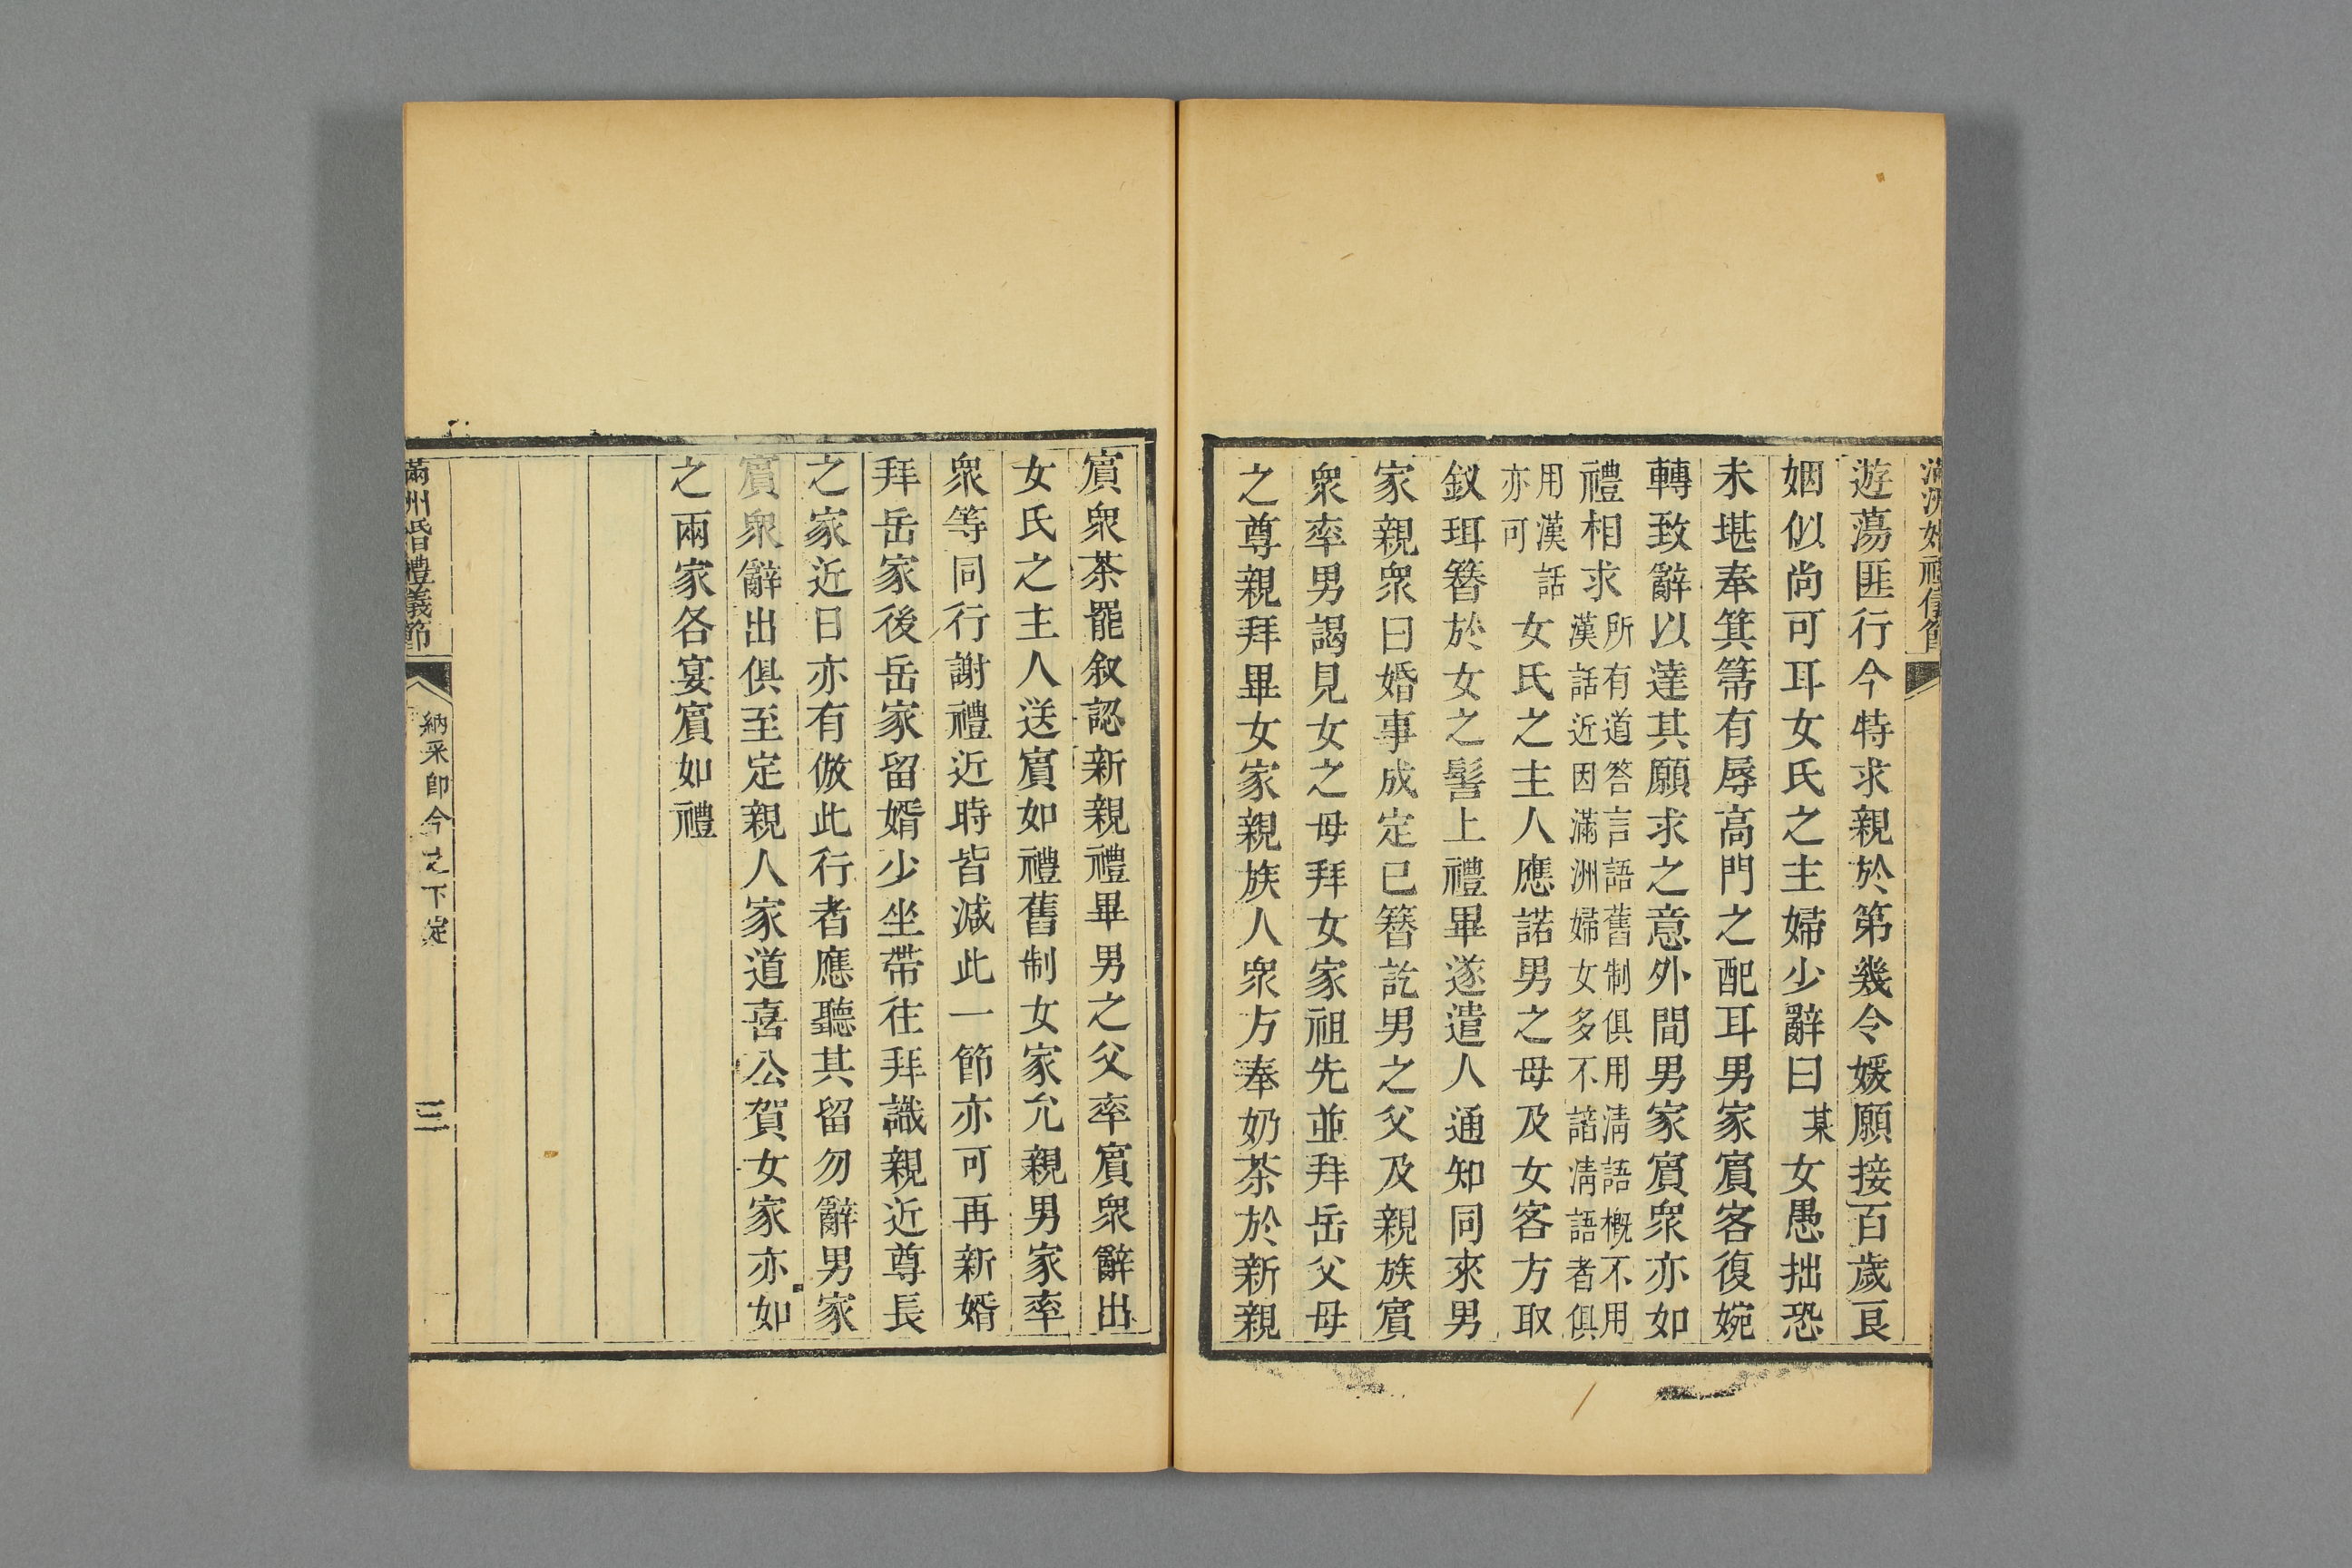 滿洲婚禮儀節
遊蕩匪行今特求親於第幾令媛願接百歲艮
姻似尚可耳女氏之主婦少辭曰某女愚拙恐
未堪奉箕箒有辱高門之配耳男家賔客復婉
轉致辭以達其願求之意外間男家賔衆亦如
禮相求所有道答言語舊制俱用淸語槪不用
漢話近因滿洲婦女多不諳淸語者俱
用漢話
亦可
女氏之主人應諾男之母及女客方取
釵珥簪於女之髻上禮畢遂遣人通知同來男
家親衆曰婚事成定已簪訖男之父及親族賔
衆率男謁見女之母拜女家祖先並拜岳父母
之尊親拜畢女家親族人衆方奉奶茶於新親
賔衆茶罷叙認新親禮畢男之父率賔衆辭出
女氏之主人送賔如禮舊制女家允親男家率
衆等同行謝禮近時皆減此一節亦可再新婿
拜岳家後岳家留婿少坐帶往拜識親近尊長
之家近日亦有倣此行者應聽其留勿辭男家
賔衆辭出俱至定親人家道喜公賀女家亦如
之兩家各宴賔如禮
滿州婚禮儀節
納采卽今之下定
三